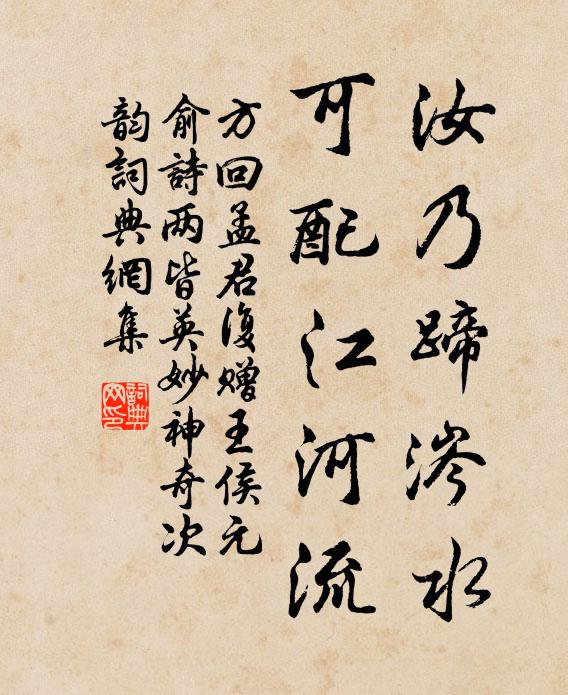 汝乃蹄涔水
可配江河流
方回孟君復赠王侯元
俞詩两皆英妙神奇次
韵詞典網集
詞典
网印